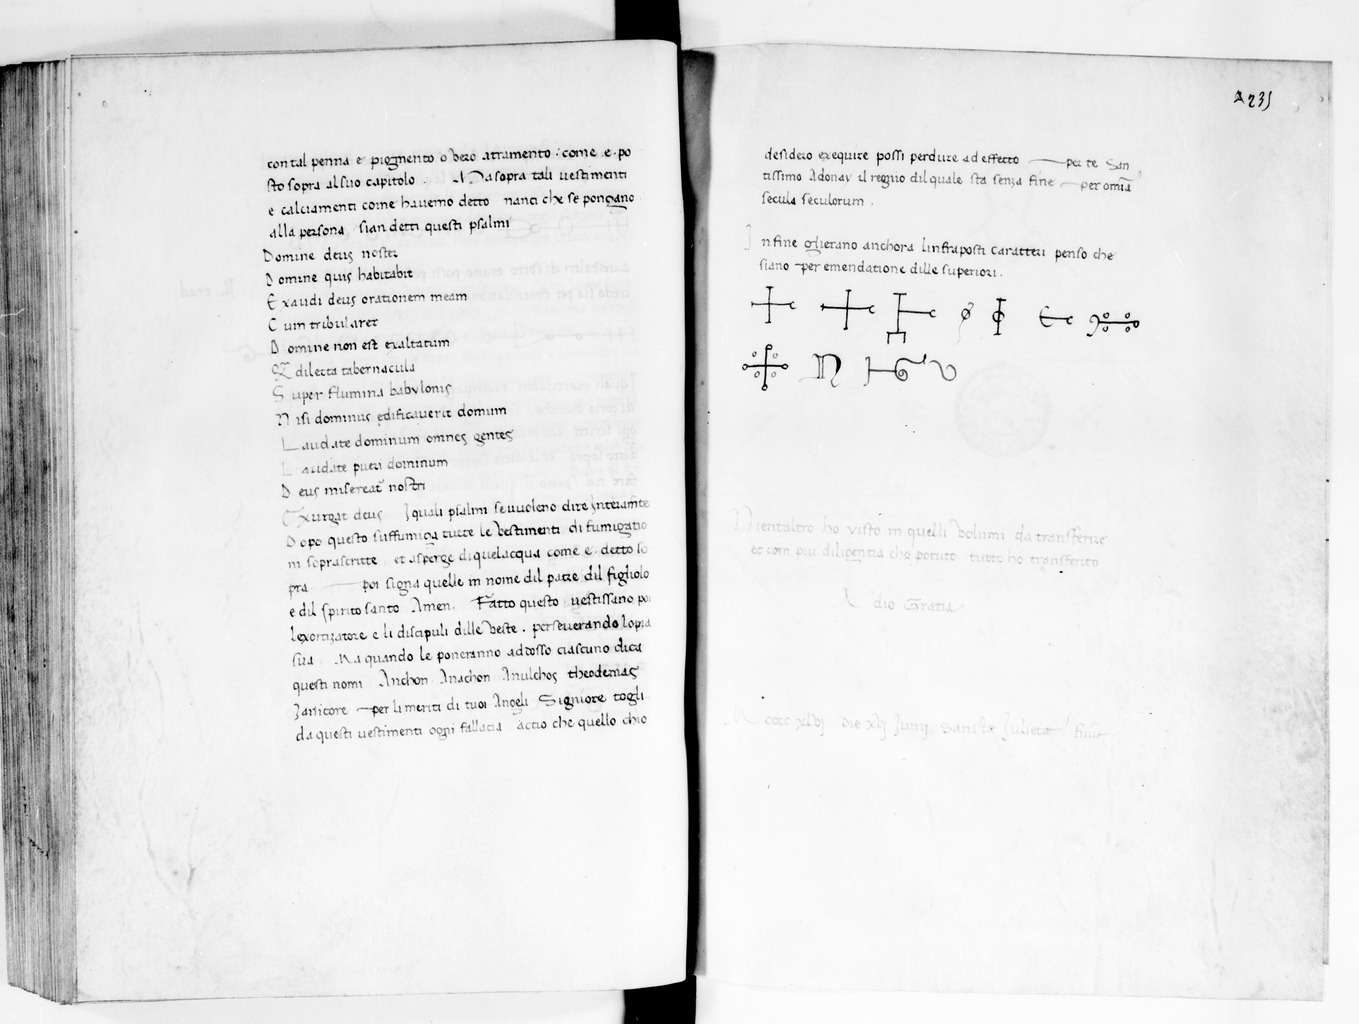 con tal penna e pigmento overo atramento : come e . po
sto sopra al suo capitolo . Ma sopra tali vestimenti
e calciamenti come havemo detto nanci che se pongano
alla persona sian detti questi psalmi
Domine deus nostri
Domine quis habitabit
Exaudi deus orationem meam
Cum tribularer
Domine non est exaltatum
Q dilecta tabernacula
Super flumina babylonis
Nisi dominus edificaverit domum
Laudate dominum omnes gentes
Laudate pueri dominum
Deus misereat nostri
Exurgat deus I quali psalmi se vuoleno dire
Dopo questo suffumiga tutte le vestimenti di fumigatio
ni soprascritte et asperge di quel acqua come e detto so
pra poi signa quelle in nome dil patre dil figliolo
e dil spirito santo Amen . Fatto questo vestissano poi
lexorcizatore e li discipuli dille veste . perseverando lopra
sua Ma quando le poneranno adosso ciascuno dica
questi nomi Anchon Anachon Anulchos theodemas
Zanicore per li meriti di tuoi Angeli Signiore togli
da questi vestimenti ogni fallacia accio che quello chio
A 235
desidero exequire possi perdure ad effetto per te San
tissimo Adonay il regno dil quale sta senza fine per omia
secula seculorum .
In fine glierano anchora linfraposti caratteri penso che
siano per emendatione dille superiori .
Nientaltro ho visto in quelli volumi da transferire
et com piu diligentia che potuto tutto ho transferito
A dio Gratia
M cccc xlvj die xvj Junij Sancte Juliete